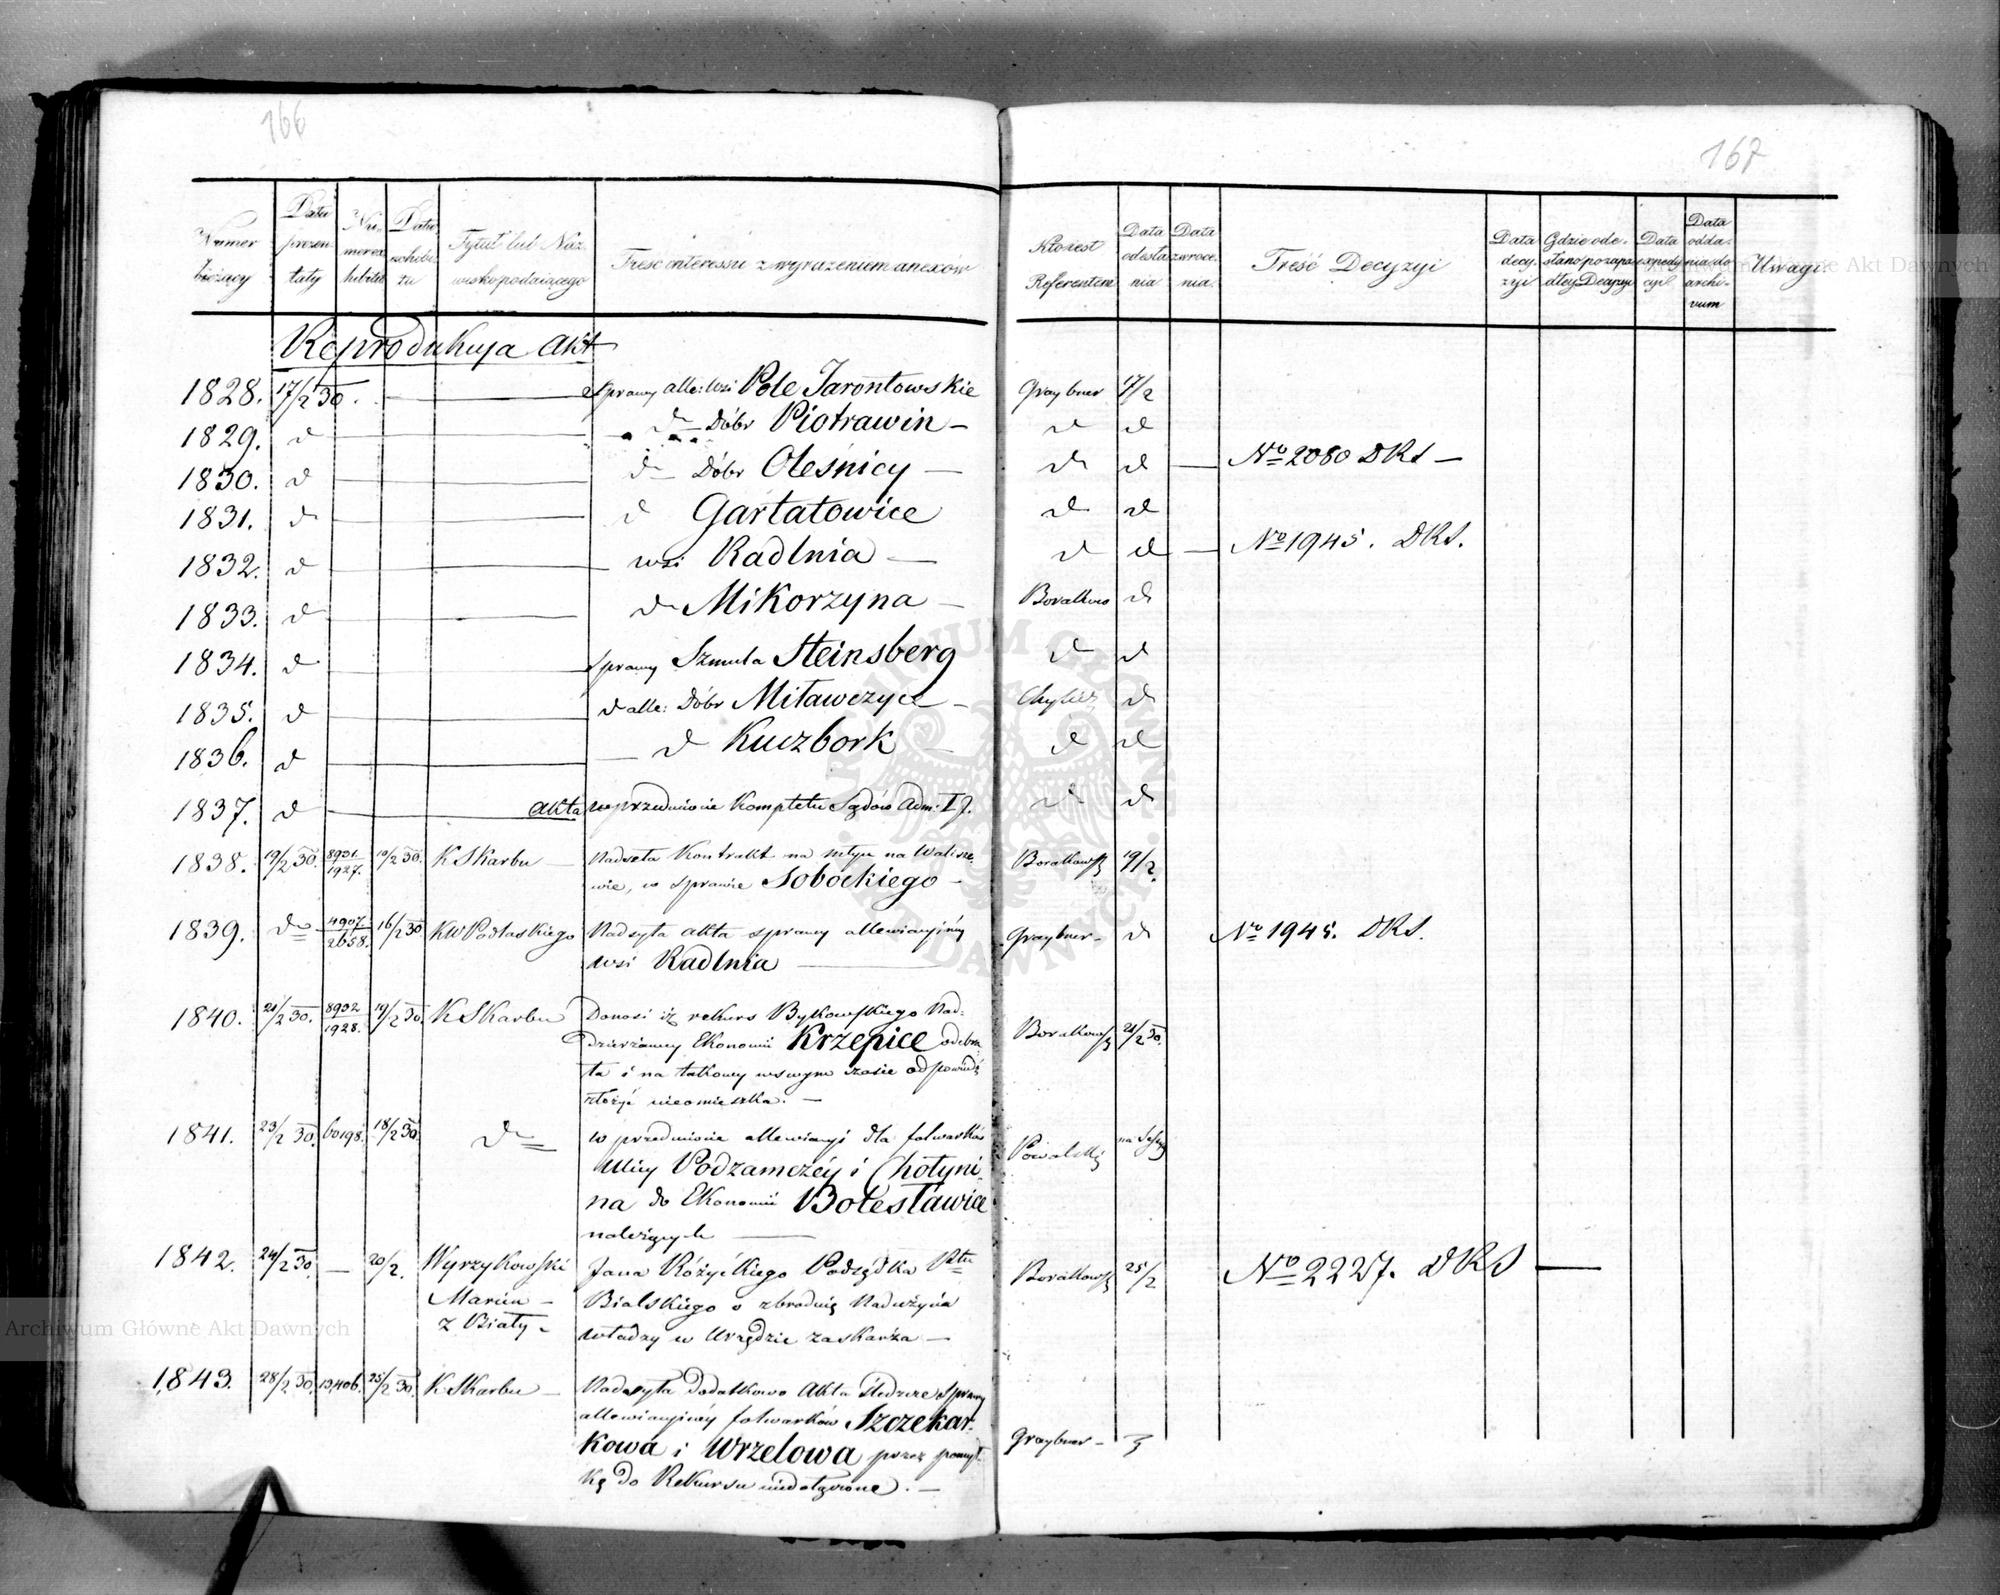 166
167
Numer bieżący
Data prezentaty
Numer exhibitu
Data exhibitu
Tytuł lub Nazwisko podającego
Treść interessu z wyrażeniem anexów
Kto iest Referentem
Data odesłania
Data zwrócenia
Treść Decyzyi
Data decyzyi
Gdzie odesłano po zapadłey Decyzyi
Data expedycyi
Data oddania do archivum
Uwagi
Reprodukuja Akt
1828. 17/2 30. — — sprawy alle: wsi Pole Jarontowskie Graybner 17/2
1829. d — d Dóbr Piotrawin — d d
1830. d — d Dóbr Oleśnicy — d d — No 2080 DKS —
1831. d — d Gartatowice d d
1832. d — wsi Radlnia — d d — No 1945. DKS.
1833. d — d Mikorzyna — d
1834. d — sprawy Szmula Steinsberg d d
1835. d — d alle: Dóbr Miławczyce — d
1836. d — d Kuczbork — d d
1837. d — Akta w przedmiocie Kompletu Sądów Adm: I J. d d
1838. 19/2 30. 8901/1927. 10/2 30. K Skarbu — Nadseła Kontrakt na młyn na Walisze-
wie, w sprawie Sobockiego — 19/2.
1839. do 4907/2658. 16/2 30 KW Podlaskiego Nadsyła akta sprawy allewiacyjnéy Graybner — d No 1945. DKS.
wsi Radlnia —
1840. 21/2 30. 8902/1928. 19/2 30. K Skarbu Donosi iż rekurs Bykowskiego Nad-
dzierżawcy Ekonomii Krzepice odebra- 21/2 30.
ła i na takowy w swym czasie odpowiedź
złożyć nieomieszka. —
1841. 23/2 30. 60198. 18/2 30. d w przedmiocie allewiacyi dla folwarków
Ulicy Podzamczéy i Chotyni-
na do Ekonomii Bolesławice
należących —
1842. 24/2 30 — 20/2. Wyrzykowski Jana Różyckiego Podsędka Ptu 25/2 No 2227. DKS —
Marcin — Bialskiego o zbrodnię Nadużycia
z Biały — władzy w Urzędzie zaskarża —
1843. 28/2 30. 13406. 25/2 30. K Skarbu — Nadsyła dodatkowo Akta śledcze sprawy
allewiacyjnéy folwarków Szczekar-
kowa i Wrzelowa przez pomył- Graybner —
kę do Rekursu niedołączone. —
ARCHIWUM GŁÓWNE AKT DAWNYCH
Archiwum Główne Akt Dawnych
Archiwum Główne Akt Dawnych